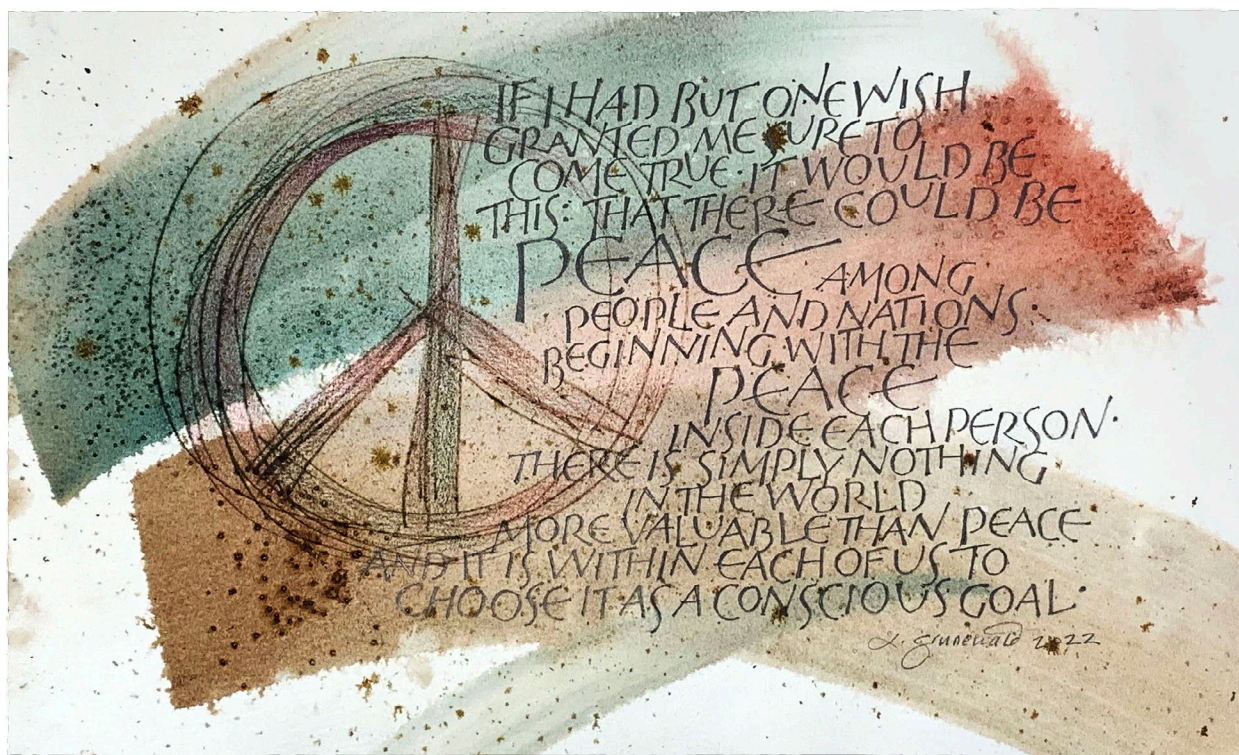 IF I HAD BUT ONE WISH
GRANTED ME SURE TO
COME TRUE· IT WOULD BE
THIS: THAT THERE COULD BE
PEACE AMONG
PEOPLE AND NATIONS·
BEGINNING WITH THE
PEACE
INSIDE EACH PERSON·
THERE IS SIMPLY NOTHING
IN THE WORLD
MORE VALUABLE THAN PEACE
AND IT IS WITHIN EACH OF US TO
CHOOSE IT AS A CONSCIOUS GOAL·
L. Grunewald 2022